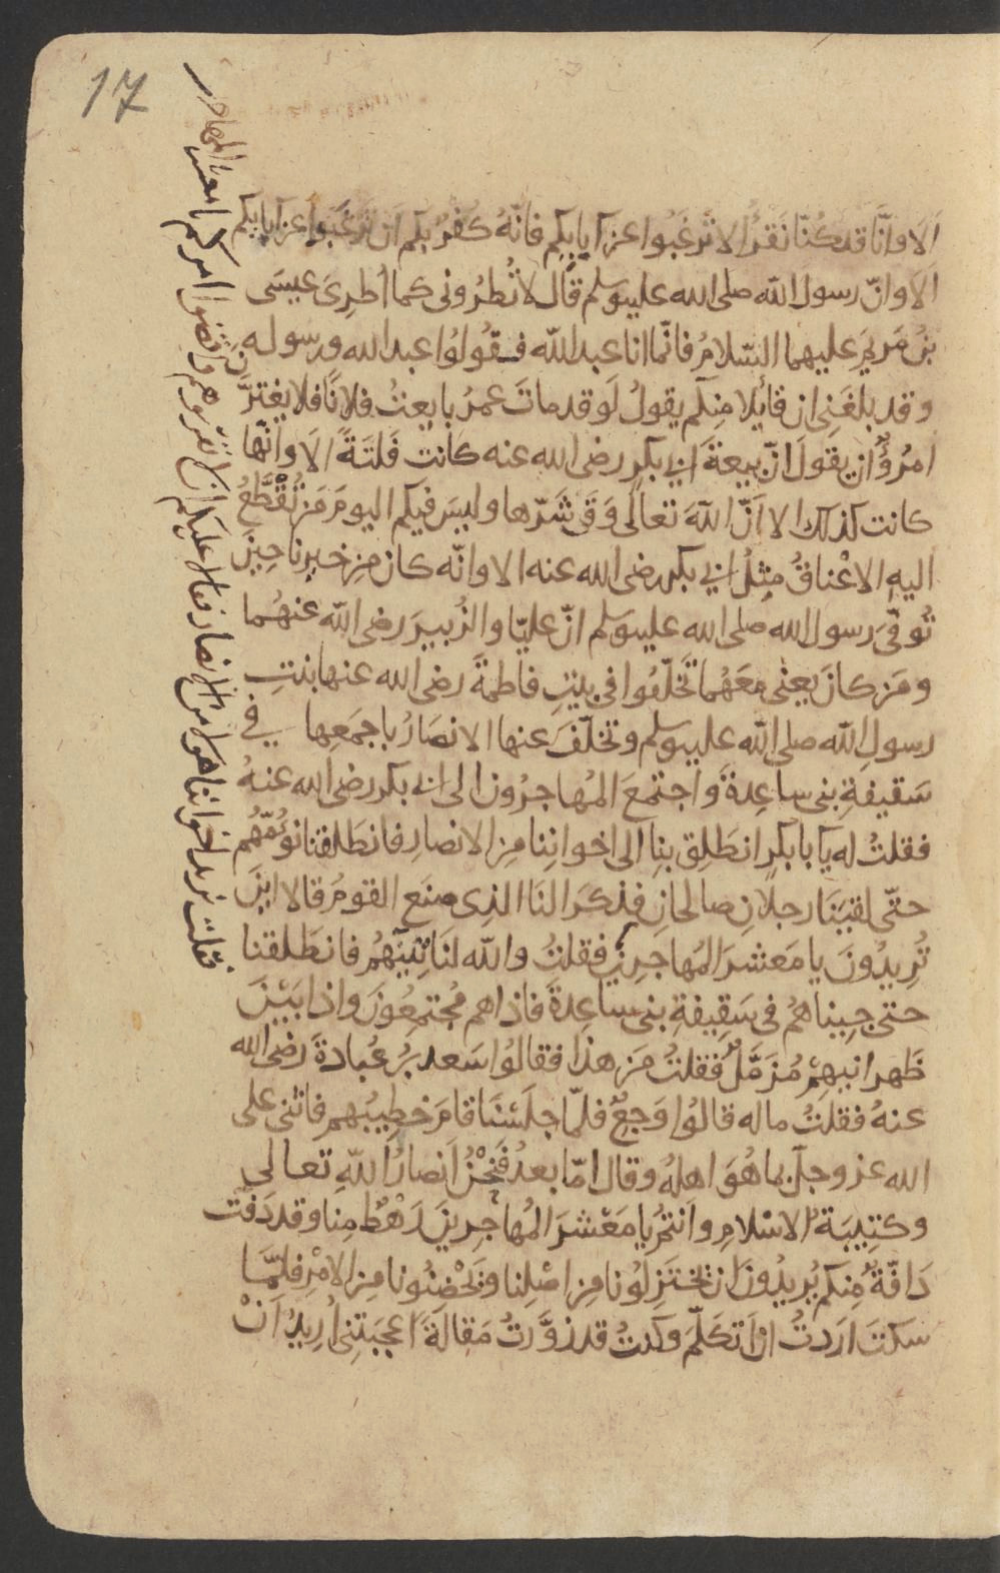 17
الا وانّا قد كنّا نقرأ لا ترغبوا عن آبايكم فانّه كفر بكم ان ترغبوا عن آبايكم
الا وانّ رسول الله صلى الله عليه وسلم قال لا تُطروني كما اُطرِى عيسَى
بنُ مَريمَ عليهما السّلامُ فانّما انا عبد الله فقُولوُا عبد الله ورسوله
وقد بلغَنِى ان قايلا منكم يقولُ لَو قد ماتَ عمرُ بايعتُ فلانًا فلا يغترّنّ
امرُؤٌ ان يقولَ انّ بيعةَ ابى بكرٍ رضى الله عنه كانت فَلتَةً الَا وانّها
كانت كذلك الا اَنّ اللهَ تعالى وَقَى شَرّها وليسَ فيكم اليومَ مَن تُقطّعُ
اليهِ الاعْناقُ مِثلُ ابى بكر رضى الله عنه الا وانّه كان مِن خيرِنا حِينَ
تُوفّىَ رسول الله صلى الله عليه وسلم انّ عليّا والزُبيرَ رضى الله عنهُما
ومَن كانَ يعنى معَهُما تخلّفُوا فى بيتِ فاطمةَ رضى الله عنها بنتِ
رسولِ الله صلى الله عليه وسلم وتخلّفَ عنها الانصَارُ باجمَعِها فى
سَقيفةِ بنى ساعِدةَ واجتمعَ المُهاجرُون الى ابى بكر رضى الله عنهُ
فقلتُ له يا بابكرٍ انطَلِق بِنا الى اخوانِنا مِن الانصارِ فانطَلقنا نوُمّهُم
حتّى لقيَنا رجلانِ صالحانِ فذكرَا لنَا الذِى صنعَ القومُ قالا اينَ
تُرِيدُونَ يا مَعشرَ المُهاجرِين فقلتُ والله لنَاتِيَنّهُم فانطَلقنا
حتى جِيناهُم فى سَقِيفةِ بنى ساعِدةَ فاذا هم مُجتمِعُونَ واذا بَيْنَ
ظَهرانيهِم مُزَمَّلٌ فقلتُ مَن هذا فقالوُا سَعد برُ عُبادةَ رضى الله
عنهُ فقلتُ ماله قالوُا وَجِعٌ فلمّا جلَسْنَا قامَ خطِيبُهم فاثنى على
الله عز وجلّ بما هُوَ اهلهُ وقال امّا بعدُ فنَحْنُ اَنصارُ اللهِ تعالى
وكتِيبَةُ الاسْلامِ وانتمُ يا مَعْشرَ المُهاجِرِينَ رَهْطٌ مِنا وقد دَفّت
دَافّةٌ مِنكم يُرِيدُونَ ان تختَزِلوُنا مِن اصْلِنا وتَحْضنُونا مِن الامْرِ فلمّا
سكتَ ارَدتُ انْ اَتكلّمَ وكنتُ قد زوَّرتُ مَقالةً اعجبَتنِى اُرِيدُ اَنْ
فقلت نريد اخواننا هولا من الانصار فقالا عليكم ان لا تقربوهم واقضوا امركم يا معشر المهاجرين